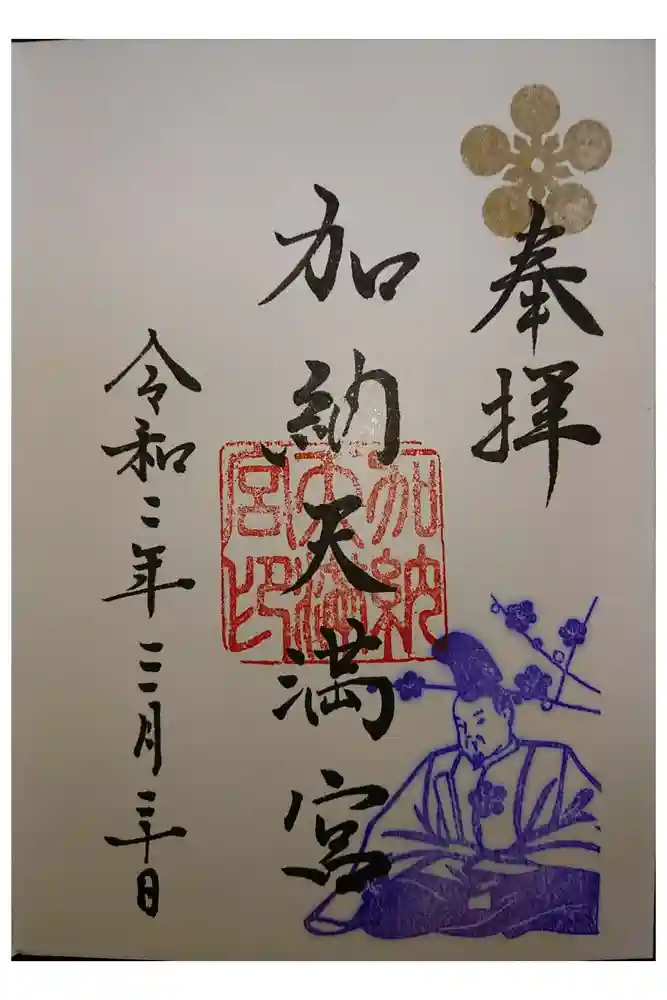 奉拝
加納天満宮
令和二年三月二十日
加納
天満
宮印